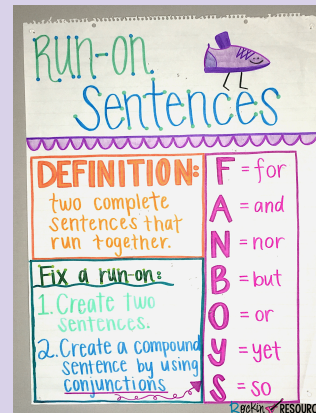 Run-on
Sentences
DEFINITION:
two complete
sentences that
run together.
Fix a run-on:
1. Create two
sentences.
2. Create a compound
sentence by using
conjunctions
F = for
A = and
N = nor
B = but
O = or
Y = yet
S = so
Rockin RESOURC